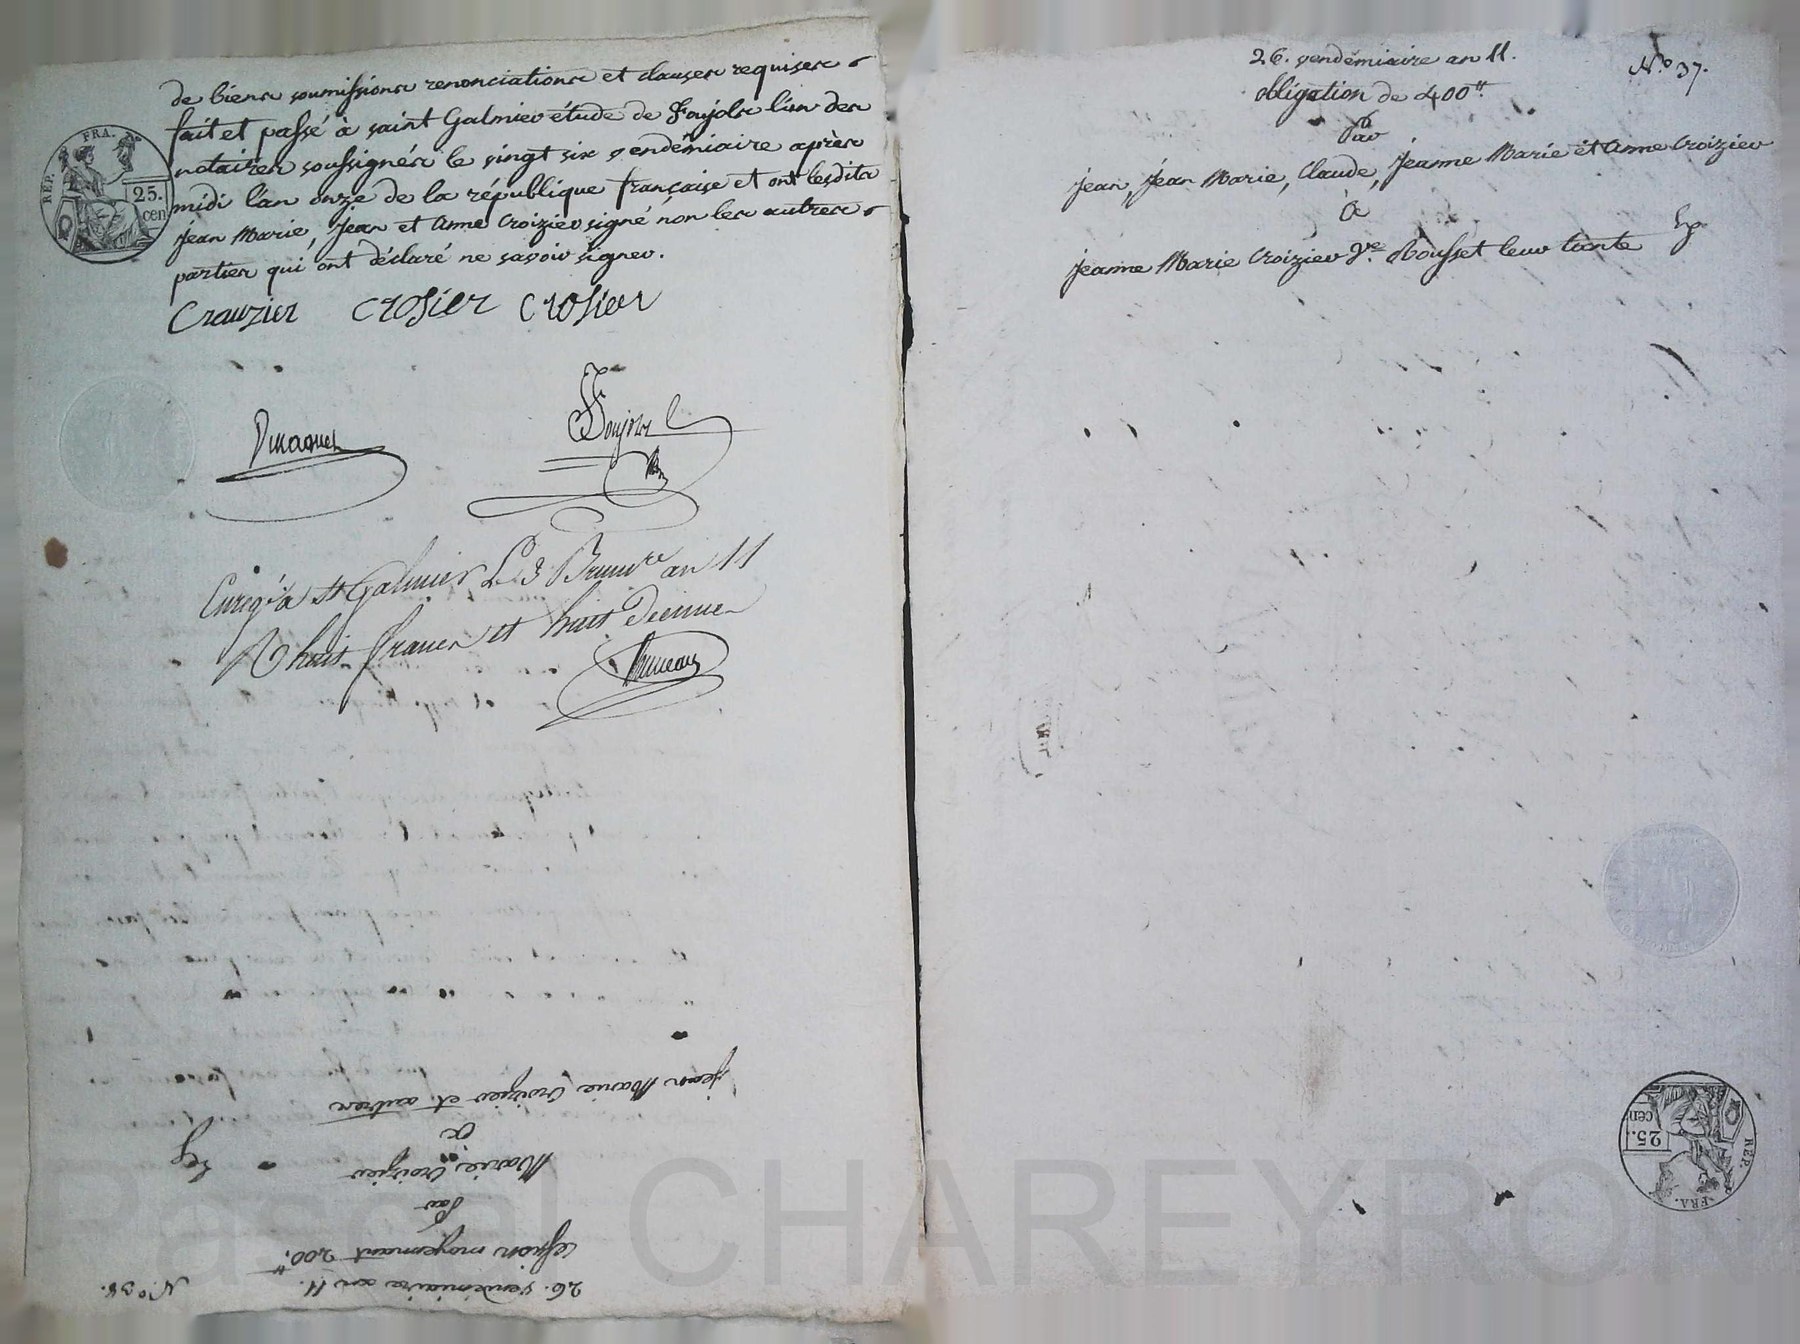 de biens soumissions renonciations et clauses requises
fait et passé à saint Galmier étude de Foujols l'un des
notaires soussignés le vingt six vendémiaire après
midi l'an onze de la république française et ont lesdits
Jean Marie, Jean et Anne Croizier signé non les autres
parties qui ont déclaré ne savoir signer.
Crauzier Crosier Crosier
REP. FRA.
25.
cen
Foujols
Enregé à St Galmier Le 3 Brumre an 11
R huit francs et huit Décimes
26. vendémiaire an 11.
N.º 38.
cession moyennant 200.tt
Par
Marie Croizier
à
Jean Marie Croizier et autres
26. vendémiaire an 11.
N.º 37.
obligation de 400tt.
Par
Jean, Jean Marie, Claude, Jeanne Marie et Anne Croizier
à
Jeanne Marie Croizier Ve. Rousset leur tante
REP. FRA.
25.
cen
Pascal CHAREYRON